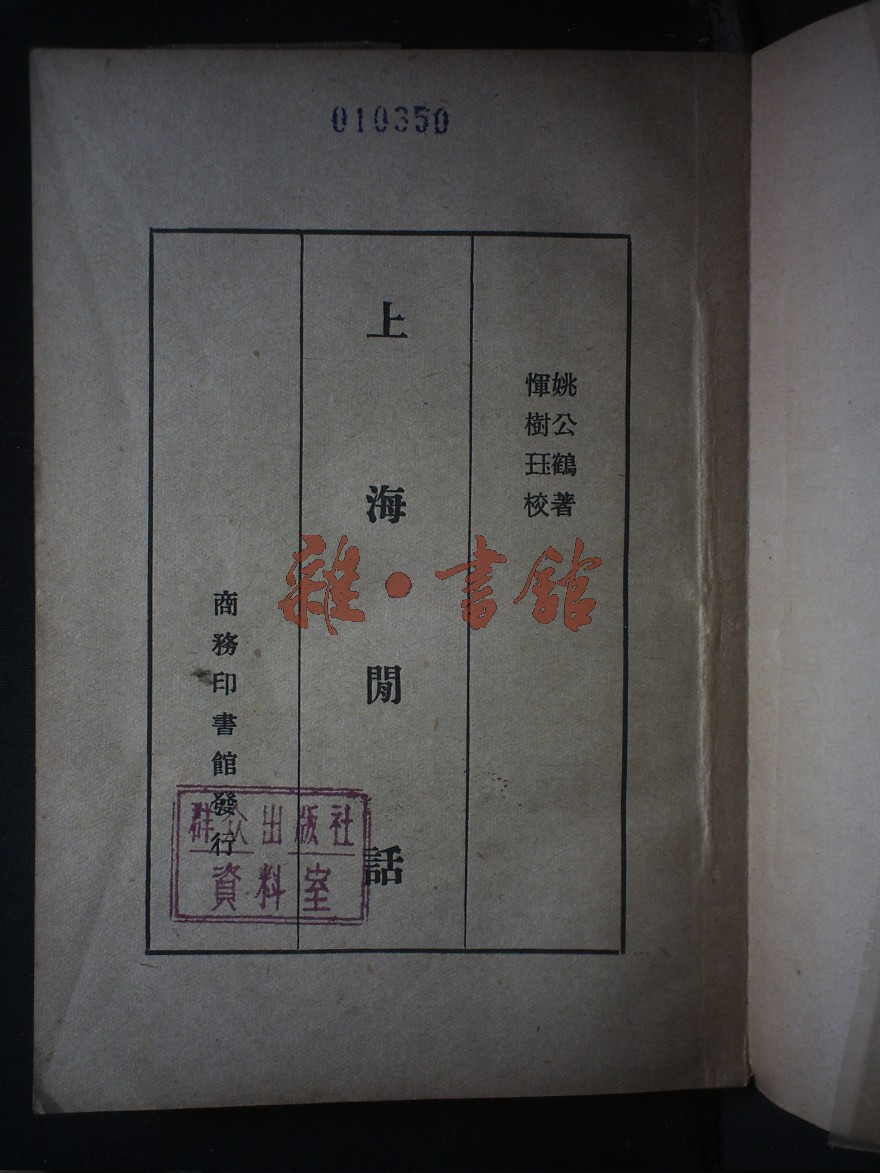 010350
姚公鶴著
惲樹珏校
上海閒話
商務印書館發行
群众出版社
資料室
雜·書館